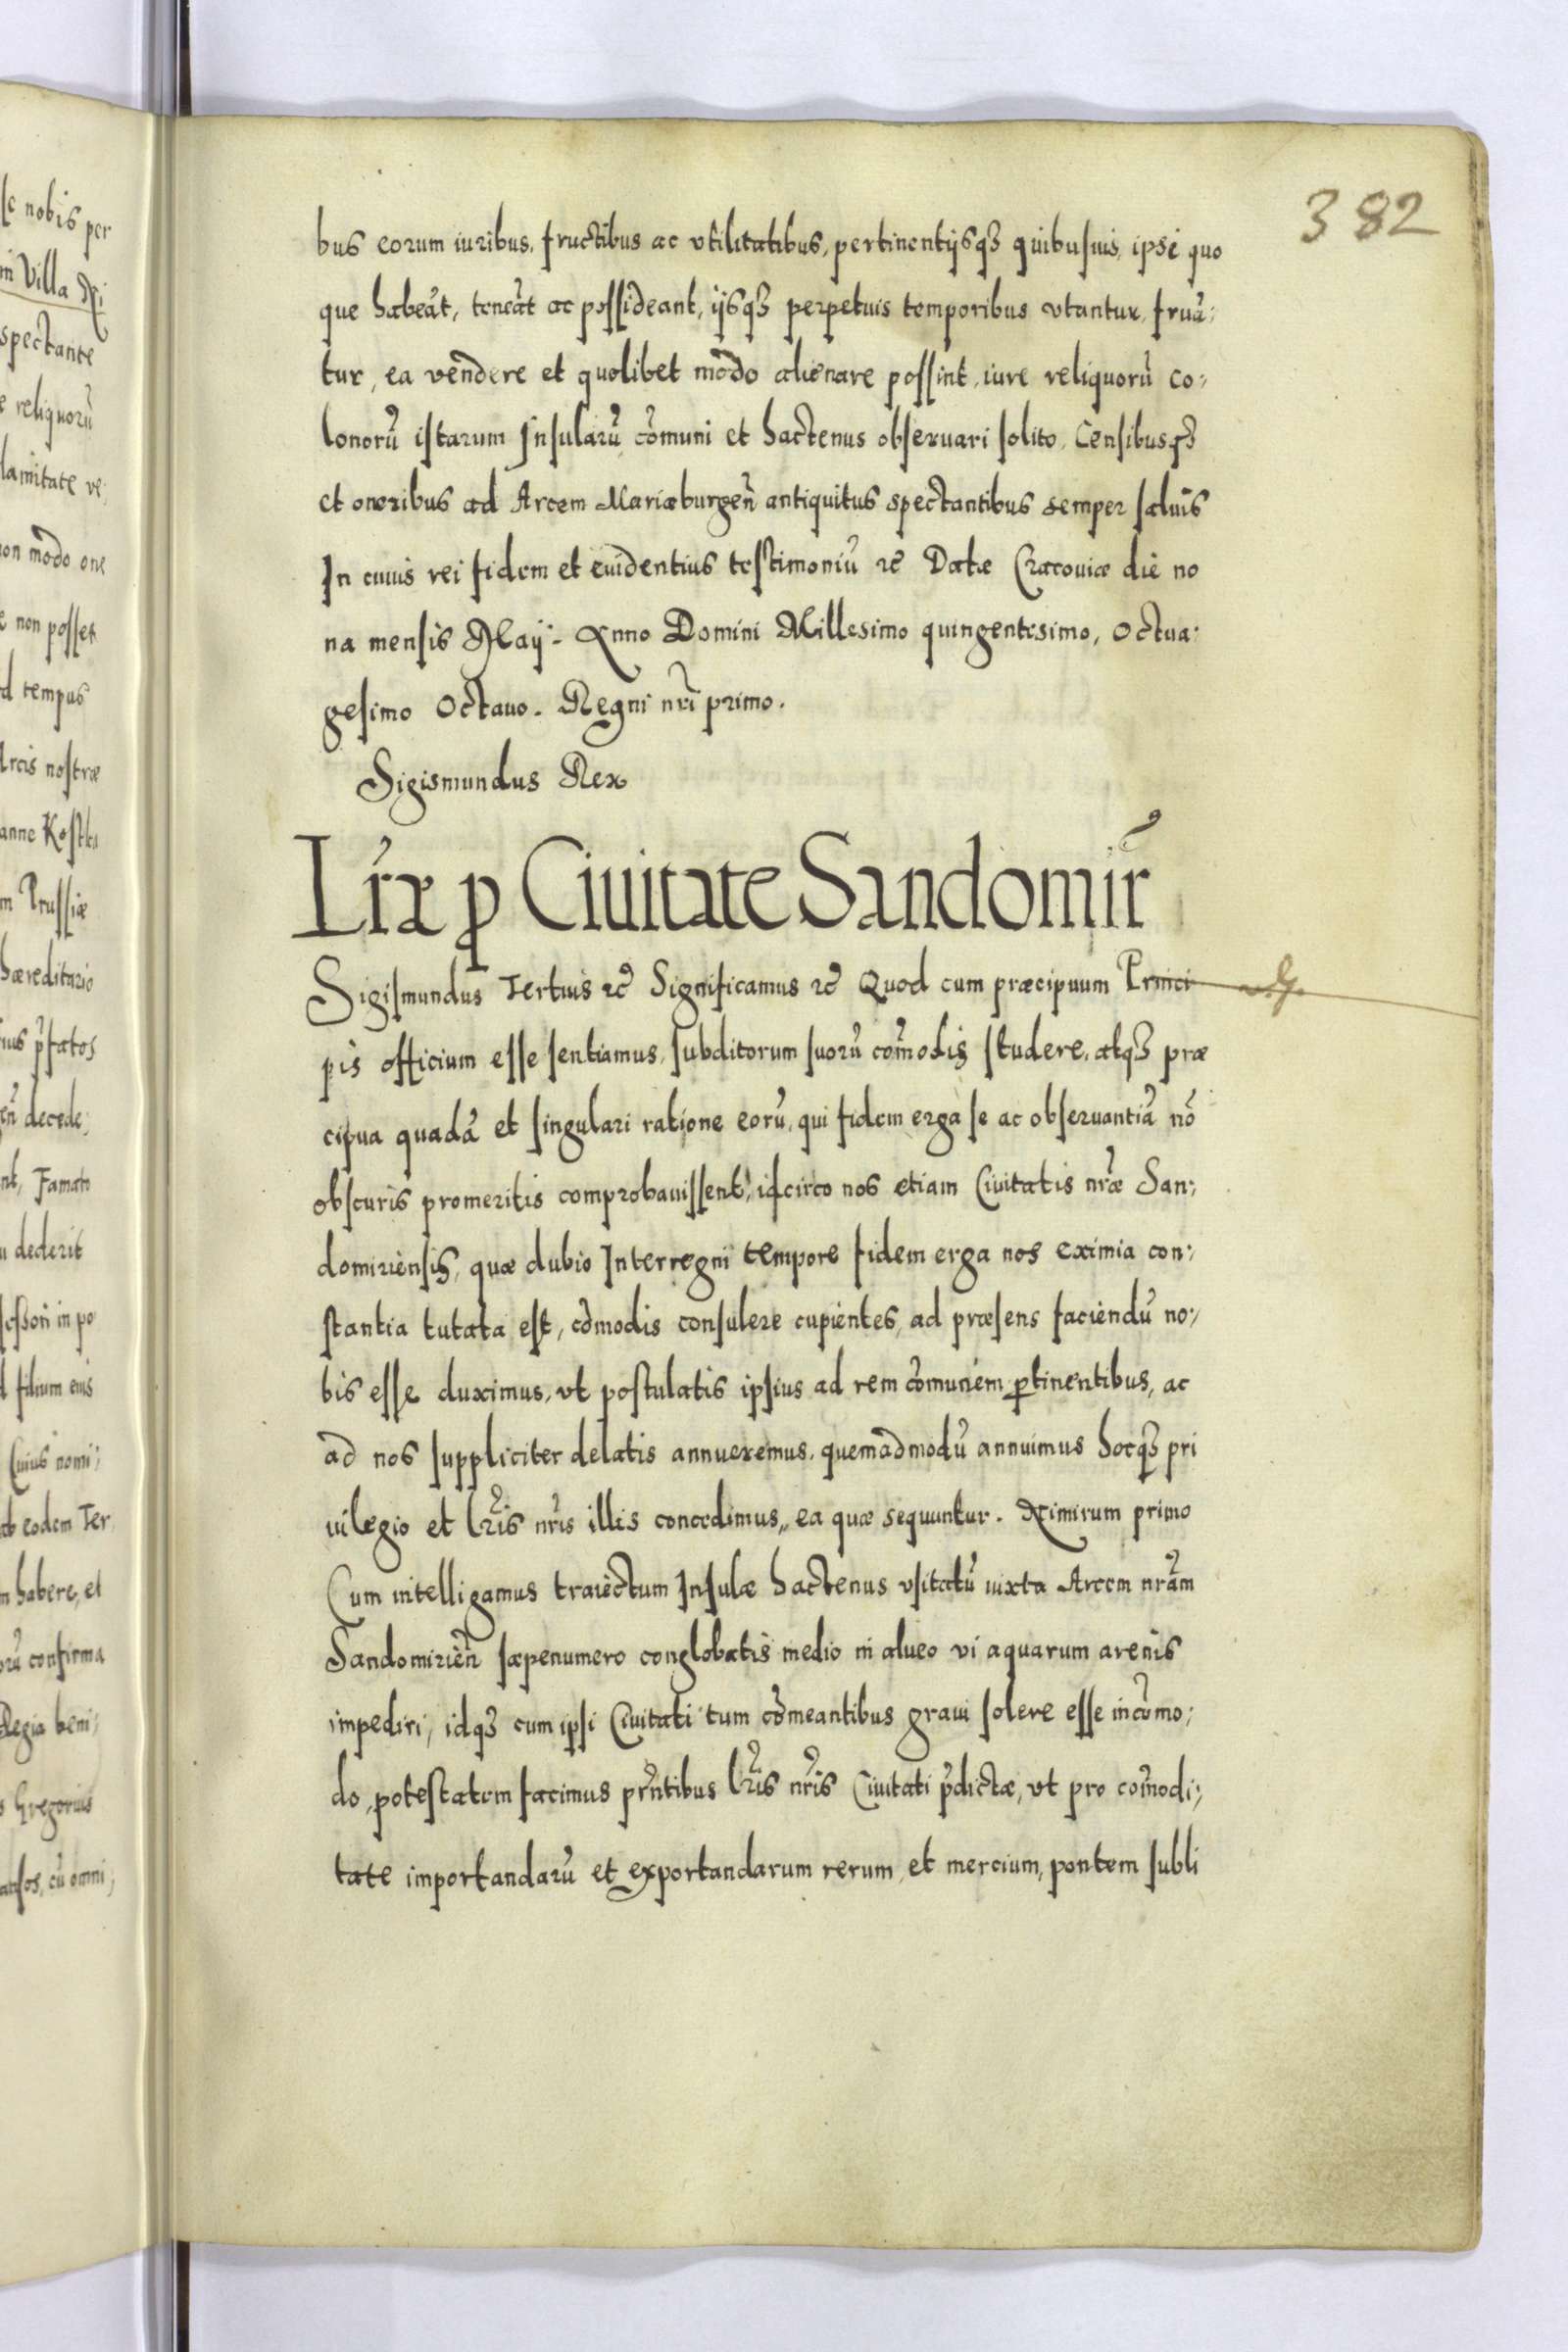 382
bus eorum iuribus, fructibus ac vtilitatibus, pertinentijsqȝ quibusuis, ipsi quo
que habeãt, teneãt ac possideant, ijsqȝ perpetuis temporibus vtantur, fruã:
tur, ea vendere et quolibet modo alienare possint, iure reliquorũ co:
lonorũ istarum Insularũ cõmuni et hactenus obseruari solito, Censibusqȝ
et oneribus ad Arcem Mariæburgeñ antiquitus spectantibus semper saluis
In cuius rei fidem et euidentius testimoniũ ꝛc Datæ Cracouiæ die no
na mensis Maij. Anno Domini Millesimo quingentesimo, Octua:
gesimo Octauo. Regni nr̃i primo.
Sigismundus Rex
Lr̃æ ꝓ Ciuitate Sandomir̃
Sigismundus Tertius ꝛc̃ Significamus ꝛc̃ Quod cum præcipuum Princi
pis officium esse sentiamus, subditorum suorũ com̃odis studere, atqȝ præ
cipua quadã et singulari ratione eorũ, qui fidem erga se ac obseruantiã nõ
obscuris promeritis comprobauissent, idcirco nos etiam Ciuitatis nr̃æ San:
domiriensis, quæ dubio Interregni tempore fidem erga nos eximia con:
stantia tutata est, cõmodis consulere cupientes, ad præsens faciendũ no:
bis esse duximus, vt postulatis ipsius ad rem cõmunem ꝑtinentibus, ac
ad nos suppliciter delatis annueremus, quemadmodũ annuimus hocqȝ pri
uilegio et lr̃is nr̃is illis concedimus, ea quæ sequuntur. Nimirum primo
Cum intelligamus traiectum Insulæ hactenus vsitatũ iuxta Arcem nr̃am
Sandomirieñ sæpenumero conglobatis medio in alueo vi aquarum arenis
impediri, idqȝ cum ipsi Ciuitati tum cõmeantibus graui solere esse incõmo:
do, potestatem facimus pr̃ntibus lr̃is nr̃is Ciuitati p̃dictæ, vt pro com̃odi:
tate importandarũ et exportandarum rerum, et mercium, pontem subli